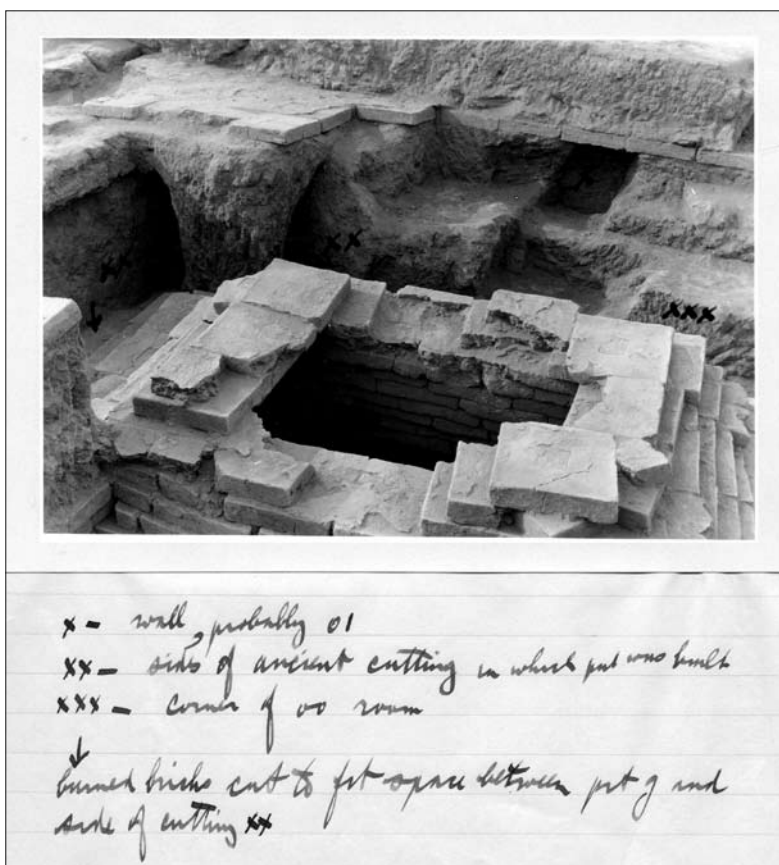 xx
xx
xxx
↓
x - wall, probably 01
xx - sides of ancient cutting in which pit was built
xxx - corner of 00 room
↓
burned bricks cut to fit space between pit g and
side of cutting xx